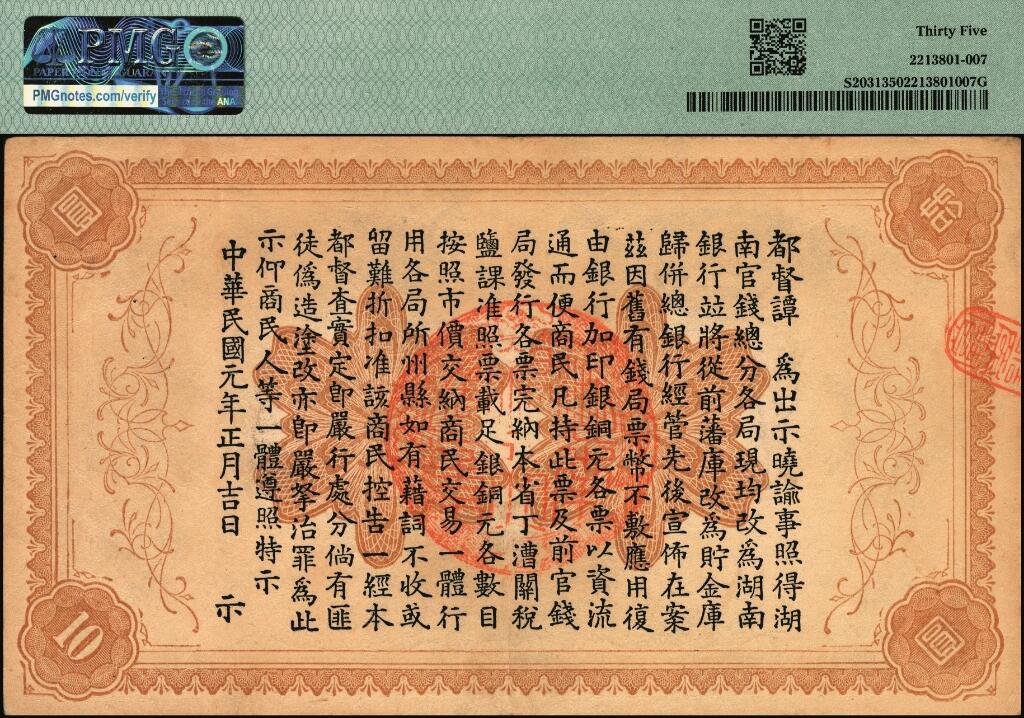 PMG
PAPER MONEY GUARANTY
PMGnotes.com/verify
ANA
Thirty Five
2213801-007
S20313502213801007G
圓
都督譚　為出示曉諭事照得湖
南官錢總分各局現均改為湖南
銀行竝將從前藩庫改為貯金庫
歸併總銀行經管先後宣佈在案
茲因舊有錢局票幣不敷應用復
由銀行加印銀銅元各票以資流
通而便商民凡持此票及前官錢
局發行各票完納本省丁漕關稅
鹽課准照票載足銀銅元各數目
按照市價交納商民交易一體行
用各局所州縣如有藉詞不收或
留難折扣准該商民控告一經本
都督查實定即嚴行處分倘有匪
徒偽造塗改亦即嚴拏治罪為此
示仰商民人等一體遵照特示
中華民國元年正月吉日　示
10
圓